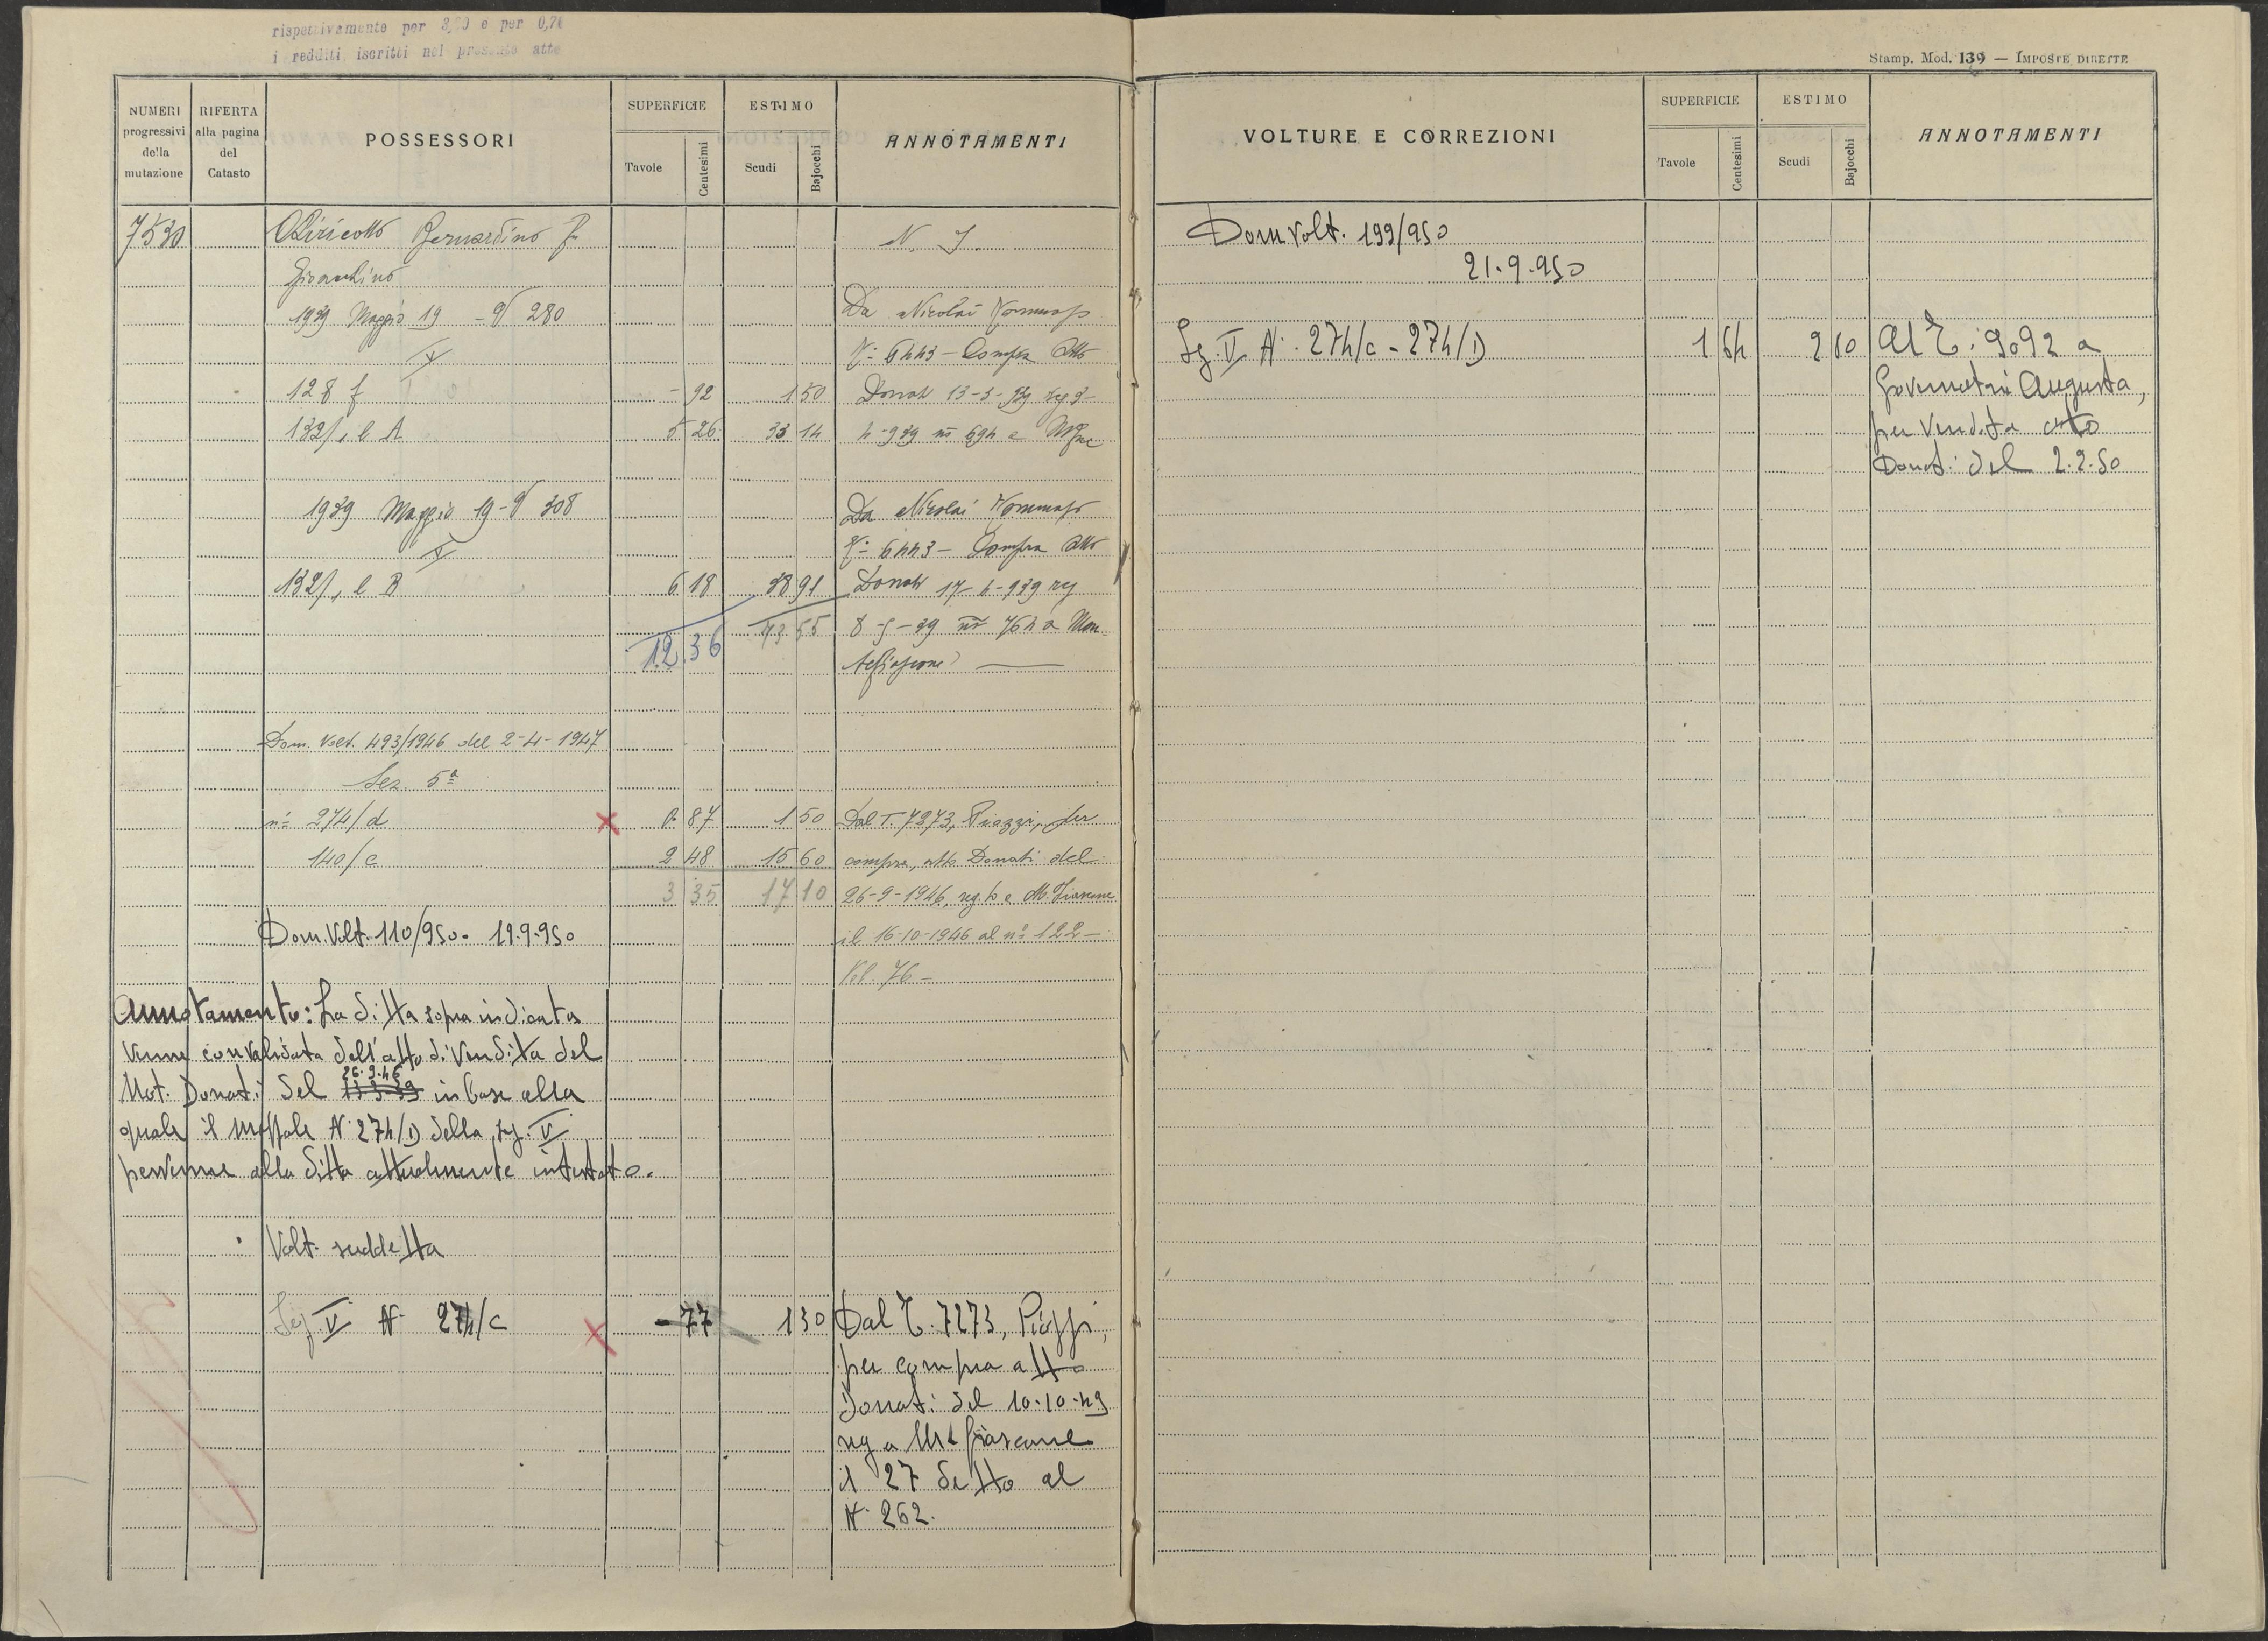 rispettivamente per 3,20 e per 0,70
i redditi iscritti nel presente atto
NUMERI progressivi della mutazione
RIFERTA alla pagina del Catasto
POSSESSORI
SUPERFICIE
Tavole
Centesimi
ESTIMO
Scudi
Bajocchi
ANNOTAMENTI
7530 Bernardino N. I.
1939 Maggio 19 - 280 Da Nicolai
V 6443 - Compra atto
128 f - 92 1 50
132/1, b A 5 26 33 14
1939 Maggio 19 - 308 Da Nicolai
V 6443 - Compra atto
132/, l B 6 18 38 91
12 36 73 55
Dom. Volt. 493/1946 del 2-4-1947
Sez. 5ª
n° 274/d 0 87 1 50 Dal T. 7273, Piazzi, per
140/c 2 48 15 60 compra, atto Donati del
3 35 17 10 26-9-1946, reg. to a M. Fiascone
Dom. Volt. 110/950 - 19.9.950 il 16-10-1946 al n° 122 -
Vol. 76 -
Annotamento: La ditta sopra indicata
venne convalidata dell'atto di Vendita del
26.9.46
Not. Donati del in base alla
quale il mappale N. 274/D della Sez. V
pervenne alla ditta attualmente intestata.
Volt. suddetta
Sez. V N. 274/c - 77 1 30 Dal T. 7273, Piazzi,
per compra atto
Donati del 10.10.49
reg a M. Fiascone
il 27 detto al
N. 262.
Stamp. Mod. 139 — IMPOSTE DIRETTE
VOLTURE E CORREZIONI
SUPERFICIE
Tavole
Centesimi
ESTIMO
Scudi
Bajocchi
ANNOTAMENTI
Dom Volt. 199/950
21.9.950
Sez. V N. 274/c - 274/D 1 64 2 80 Al T. 9092 a
Augusta,
per Vendita atto
Donati del 2.2.50